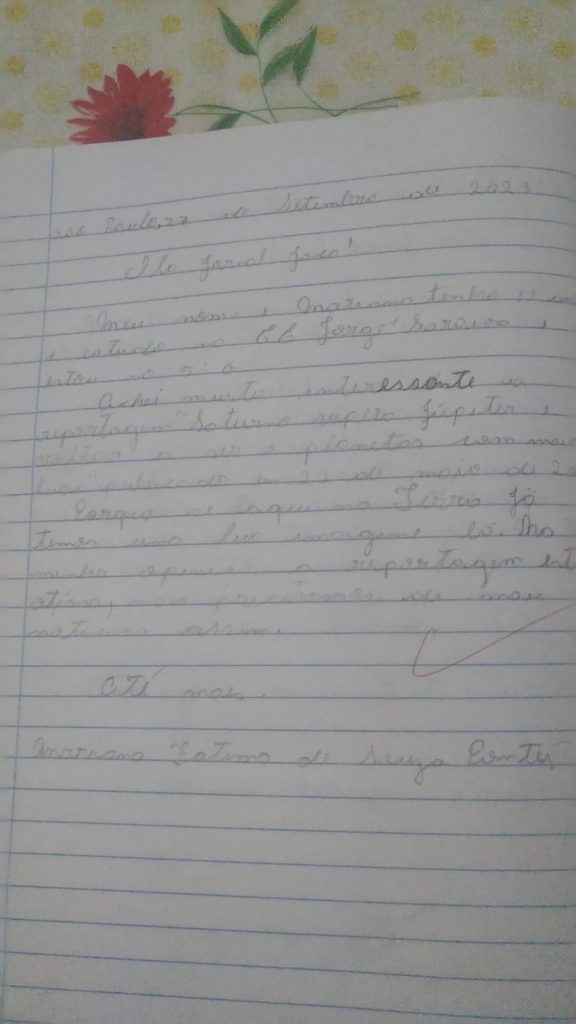 São Paulo, 27 de Setembro de 2023
Alo Jornal Joca!
Meu nome e Mariana tenho 11
e estudo na EE Jorge Saraiva e
estou no 5º a
Achei muito interessante a
reportagem "Saturno supera Júpiter e
volta a ser o planetas com mais
luas" publicado em 22 de maio de
Porque se aqui na Terra já
temos uma lua imagine lá. Na
minha opinião a reportagem
ótima, mais precisamos de mais
noticias assim.
Até mais.
Mariana Fatima de Souza Pontes